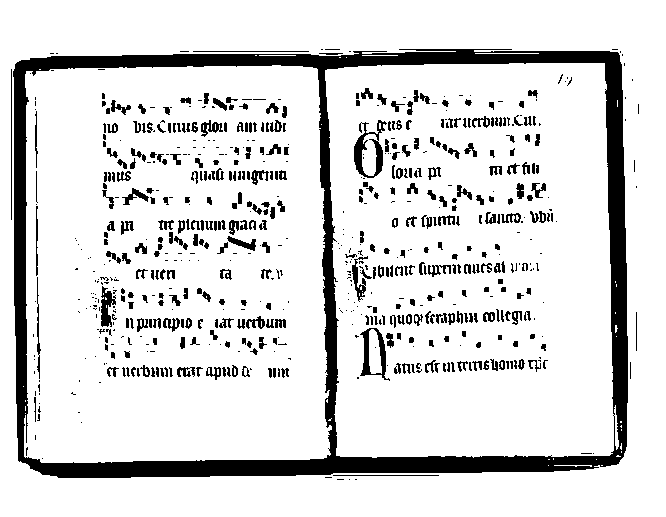 no bis. Cuius glori am uidi
mus quasi unigeniti
a pa tre plenum gracia
et ueri ta te. v
In principio e rat uerbum
et uerbum erat apud de um
19
et deus e rat uerbum. Cui.
Gloria pa tri et fili
o et spiritu i sancto. vbū.
Iubilent superni ciues al
ma quoqꝫ seraphin collegia.
Natus est in terris homo xpc